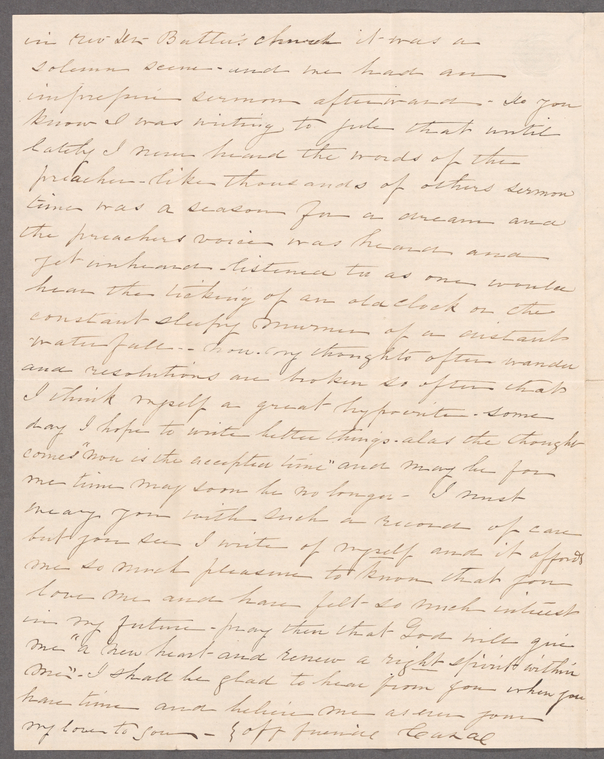 in rev Dr Butler's church it was a
solemn scene - and we had an
impressive sermon afterward - do you
know I was writing to Jule that until
lately I never heard the words of the
preacher - like thousands of others sermon
time was a season for a dream and
the preachers voice was heard and
yet unheard - listened to as one would
hear the ticking of an old clock or the
constant sleepy murmer of a distant
waterfall -- now my thoughts often wander
and resolutions are broken so often that
I think myself a great hypocrite - some
day I hope to write better things - alas the thought
comes "now is the accepted time" and may be for
me time may soon be no longer - I must
weary you with such a record of care
but you see I write of myself and it affords
me so much pleasure to know that you
love me and have felt so much interest
in my future - pray then that God will give
me "a new heart and renew a right spirit within
me" - I shall be glad to hear from you when you
have time and believe me as ever your
my love to you - & aff friend